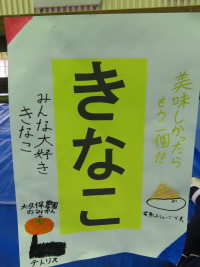 美味しかったら
もう一個!!
きなこ
みんな大好き
きなこ
大久保農園
のみかん
テトリス